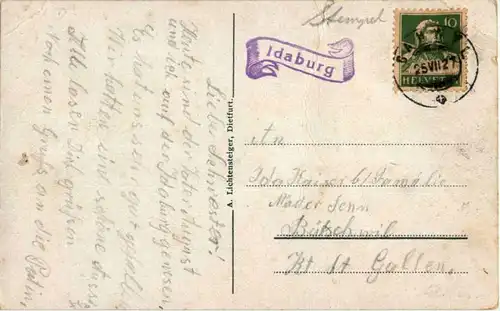 Stempel
Idaburg
10
25 VII 27
HELVETIA
Liebe Schwester!
Heute sind der Vater August
und ich auf der Idaburg gewesen,
Es hat uns sehr gut gefallen
Wir hatten eine schöne Auss
Alle lassen Dich grüßen
Noch einen Gruss an die Patin,
A. Lichtensteiger, Dietfurt.
An
Ida Kaiser b/Familie
Mader Senn
Bütschwil
Kt. St. Gallen.